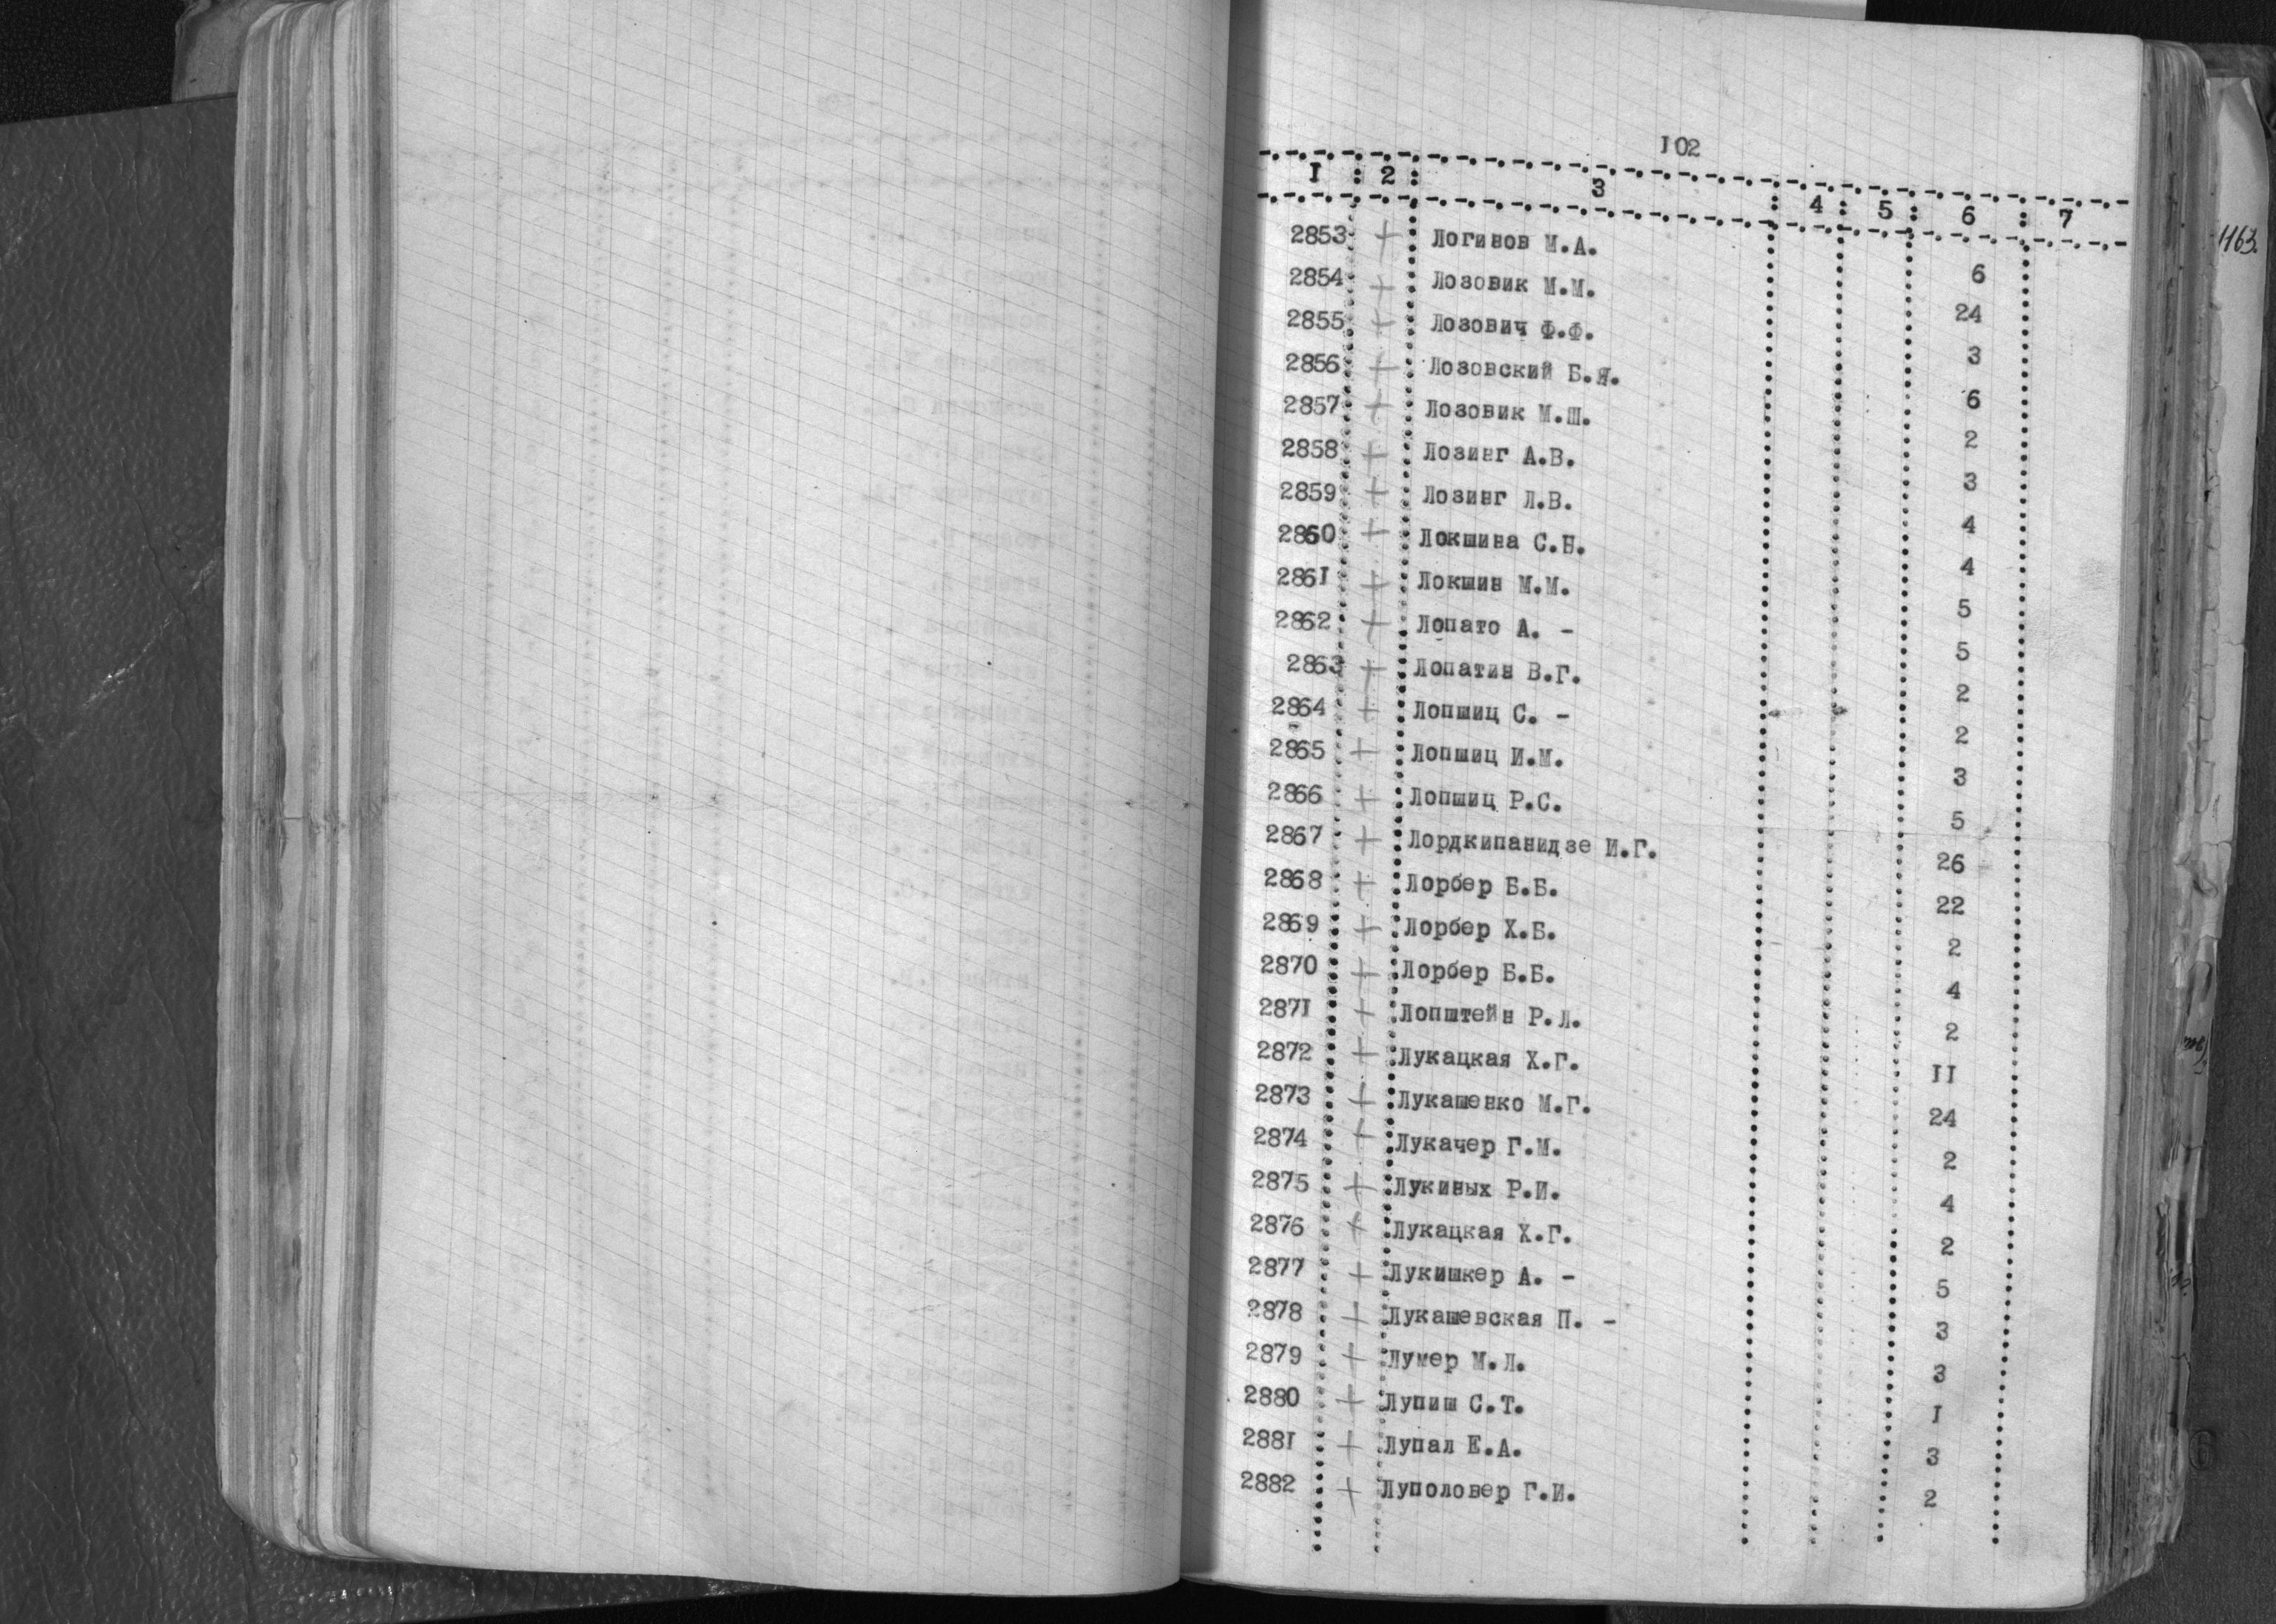 I02
I : 2 : 3 : 4 : 5 : 6 : 7
2853 + Логинов М.А. 6
2854 + Лозовик М.М. 24
2855 + Лозович Ф.Ф. 3
2856 + Лозовский Б.Я. 6
2857 + Лозовик М.Ш. 2
2858 + Лозинг А.В. 3
2859 + Лозинг Л.В. 4
2860 + Локшина С.Н. 4
286I + Локшин М.М. 5
2862 + Лопато А. - 5
2863 + Лопатин В.Г. 2
2864 + Лопшиц С. - 2
2865 + Лопшиц И.М. 3
2866 + Лопшиц Р.С. 5
2867 + Лордкипанидзе И.Г. 26
2868 + Лорбер Б.Б. 22
2869 + Лорбер Х.Б. 2
2870 + Лорбер Б.Б. 4
287I + Лопштейн Р.Л. 2
2872 + Лукацкая Х.Г. II
2873 + Лукашенко М.Г. 24
2874 + Лукачер Г.М. 2
2875 + Лукиных Р.И. 4
2876 + Лукацкая Х.Г. 2
2877 + Лукишкер А. - 5
2878 + Лукашевская П. - 3
2879 + Лумер М.Л. 3
2880 + Лупиш С.Т. I
288I + Лупал Е.А. 3
2882 + Луполовер Г.И. 2
1163.